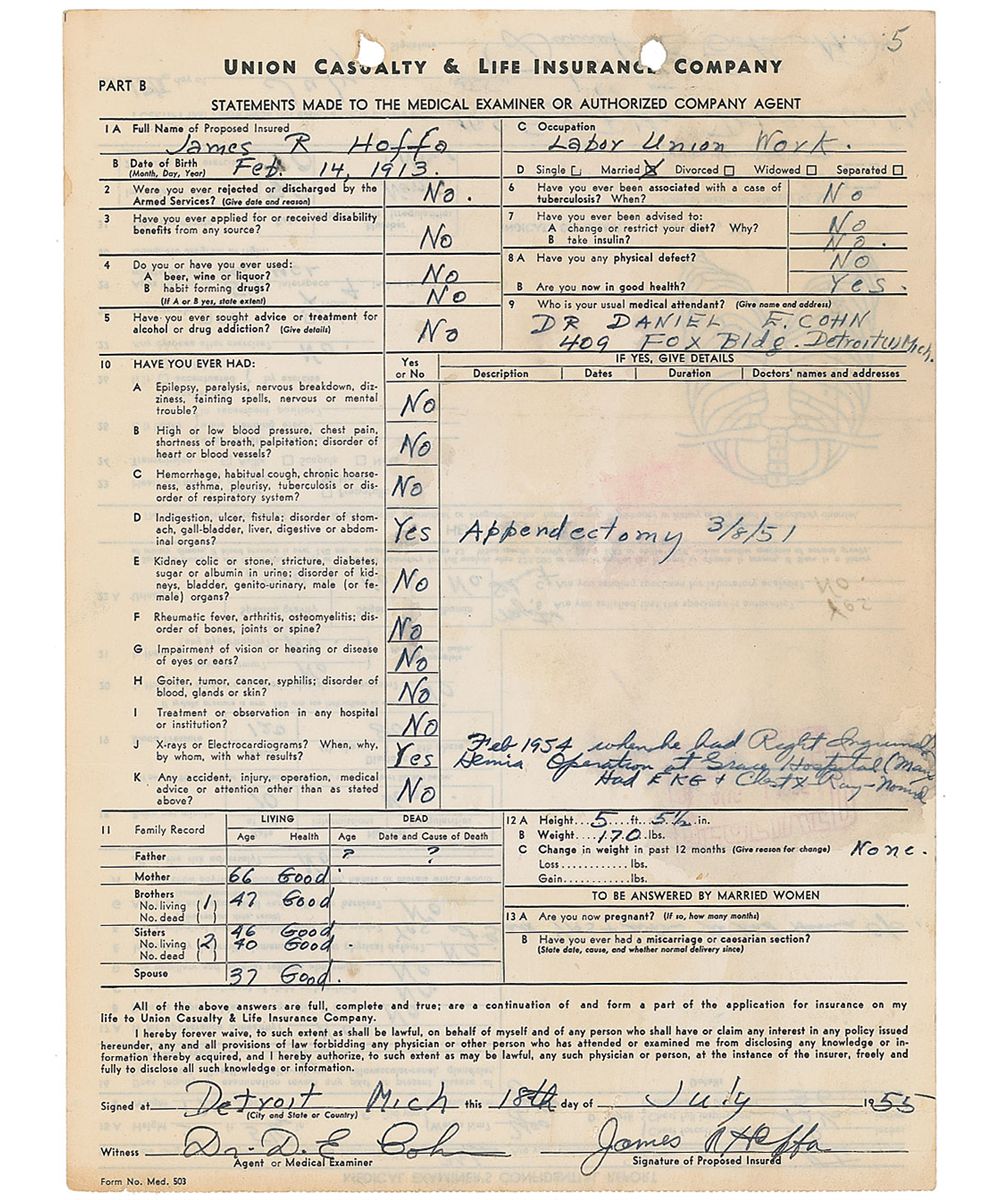 5
UNION CASUALTY & LIFE INSURANCE COMPANY
PART B
STATEMENTS MADE TO THE MEDICAL EXAMINER OR AUTHORIZED COMPANY AGENT
1 A Full Name of Proposed Insured
James R Hoffa
B Date of Birth (Month, Day, Year) Feb. 14, 1913.
C Occupation
Labor Union Work.
D Single ☐ Married ☒ Divorced ☐ Widowed ☐ Separated ☐
2 Were you ever rejected or discharged by the
Armed Services? (Give date and reason) No.
3 Have you ever applied for or received disability
benefits from any source? No
4 Do you or have you ever used:
A beer, wine or liquor? No
B habit forming drugs? No
(If A or B yes, state extent)
5 Have you ever sought advice or treatment for
alcohol or drug addiction? (Give details) No
6 Have you ever been associated with a case of
tuberculosis? When? No
7 Have you ever been advised to:
A change or restrict your diet? Why? No
B take insulin? No.
8 A Have you any physical defect? No
B Are you now in good health? Yes.
9 Who is your usual medical attendant? (Give name and address)
DR DANIEL E. COHN
409 FOX Bldg. Detroit Mich.
10 HAVE YOU EVER HAD: Yes or No
IF YES, GIVE DETAILS
Description Dates Duration Doctors' names and addresses
A Epilepsy, paralysis, nervous breakdown, diz-
ziness, fainting spells, nervous or mental
trouble? No
B High or low blood pressure, chest pain,
shortness of breath, palpitation; disorder of
heart or blood vessels? No
C Hemorrhage, habitual cough, chronic hoarse-
ness, asthma, pleurisy, tuberculosis or dis-
order of respiratory system? No
D Indigestion, ulcer, fistula; disorder of stom-
ach, gall-bladder, liver, digestive or abdom-
inal organs? Yes Appendectomy 3/8/51
E Kidney colic or stone, stricture, diabetes,
sugar or albumin in urine; disorder of kid-
neys, bladder, genito-urinary, male (or fe-
male) organs? No
F Rheumatic fever, arthritis, osteomyelitis; dis-
order of bones, joints or spine? No
G Impairment of vision or hearing or disease
of eyes or ears? No
H Goiter, tumor, cancer, syphilis; disorder of
blood, glands or skin? No
I Treatment or observation in any hospital
or institution? No
J X-rays or Electrocardiograms? When, why,
by whom, with what results? Yes
Feb 1954 when he had Right Inguinal
Hernia Operation at Grace Hospital
Had EKG + Chest X Ray - Normal
K Any accident, injury, operation, medical
advice or attention other than as stated
above? No
11 Family Record LIVING DEAD
Age Health Age Date and Cause of Death
Father ? ?
Mother 66 Good
Brothers
No. living (1) 47 Good
No. dead ( )
Sisters 46 Good
No. living (2) 40 Good
No. dead ( )
Spouse 37 Good.
12 A Height...5...ft. 5½ in.
B Weight...170..lbs.
C Change in weight in past 12 months (Give reason for change) None.
Loss............lbs.
Gain............lbs.
TO BE ANSWERED BY MARRIED WOMEN
13 A Are you now pregnant? (If so, how many months)
B Have you ever had a miscarriage or caesarian section?
(State date, cause, and whether normal delivery since)
All of the above answers are full, complete and true; are a continuation of and form a part of the application for insurance on my
life to Union Casualty & Life Insurance Company.
I hereby forever waive, to such extent as shall be lawful, on behalf of myself and of any person who shall have or claim any interest in any policy issued
hereunder, any and all provisions of law forbidding any physician or other person who has attended or examined me from disclosing any knowledge or in-
formation thereby acquired, and I hereby authorize, to such extent as may be lawful, any such physician or person, at the instance of the insurer, freely and
fully to disclose all such knowledge or information.
Signed at Detroit Mich this 18th day of July 1955
(City and State or Country)
Witness Dr. D. E Cohn James R Hoffa
Agent or Medical Examiner Signature of Proposed Insured
Form No. Med. 503